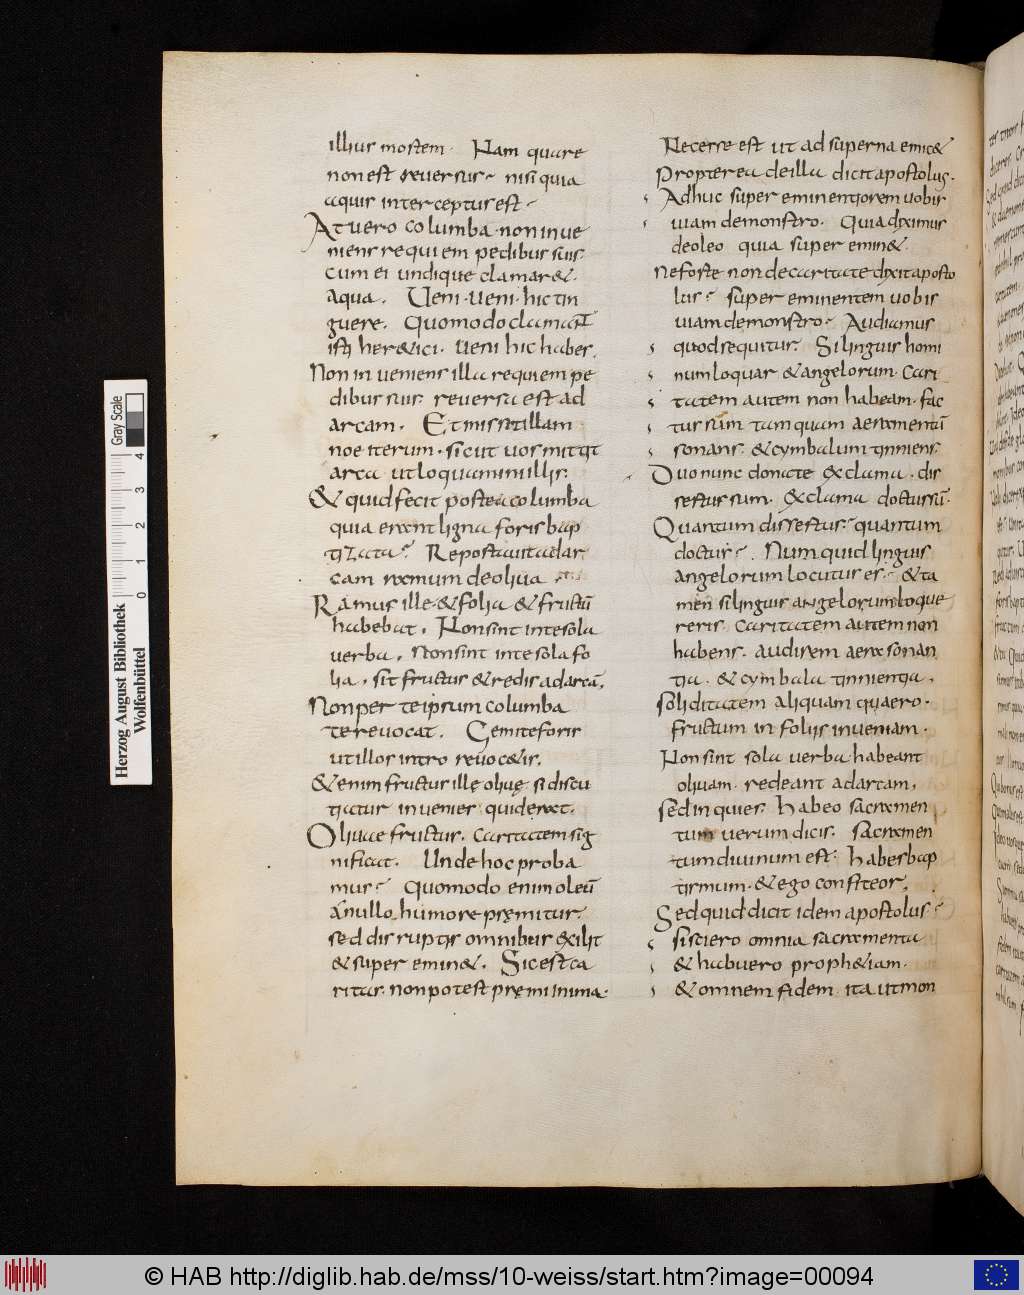 illius mortem. Nam quare
non est reversus? nisi quia
aquis interceptus est?
At vero columba. non inve
niens requiem pedibus suis.
cum ei undique clamar&.
aqua. Veni. veni. hic tin
guere. Quomodo clamant
isti her&ici. Veni hic habes.
Non inveniens illa requiem pe
dibus suis. reversa est ad
arcam. Et misit illam
noe iterum. sicut vos mittit
arca ut loquamini illis.
& quid fecit postea columba
quia erant ligna foris bap
tizata? Reportavit ad ar
cam ramum de oliva
Ramus ille & folia & fructū
habebat. Non sint in te sola
verba. Non sint in te sola fo
lia. sit fructus & redis ad arcā.
Non per te ipsum columba
te revocat. Gemite foris
ut illos intro revoc&is.
& enim fructus ille olivę si discu
tiatur invenies quid erat.
Olivae fructus. caritatem sig
nificat. Unde hoc proba
mus? Quomodo enim oleū
a nullo humore pręmitur.
sed disruptis omnibus &xilit
& super emin&. Sic est ca
ritas. non potest pręmi in ima.
Necesse est ut ad superna emic&
Propterea de illa dicit apostolus.
Adhuc super eminentiorem vobis
viam demonstro. Quia diximus
de oleo quia super emin&.
ne forte non de caritate dixit aposto
lus? super eminentem vobis
viam demonstro? Audiamus
quod sequitur. Si linguis homi
num loquar & angelorum. Cari
tatem autem non habeam. fac
tus sum tam quam aeramentū
sonans. & cymbalum tinniens.
Duo nunc donate & clama. dis
sertus sum. & clama doctus sū.
Quantum dissertus? quantum
doctus? Numquid linguis
angelorum locutus es? & ta
men si linguis angelorum loque
reris. caritatem autem non
habens. audirem aera sonan
tia. & cymbala tinnientia.
soliditatem aliquam quaero.
fructum in foliis inveniam.
Non sint sola verba habeant
olivam. redeant ad arcam.
sed inquies. habeo sacramen
tum verum dicis. Sacramen
tum divinum est. habes bap
tismum. & ego confiteor.
Sed quid dicit idem apostolus?
si sciero omnia sacramenta
& habuero proph&iam.
& omnem fidem ita ut mon
Herzog August Bibliothek
Wolfenbüttel
Gray Scale
0 1 2 3 4
© HAB http://diglib.hab.de/mss/10-weiss/start.htm?image=00094